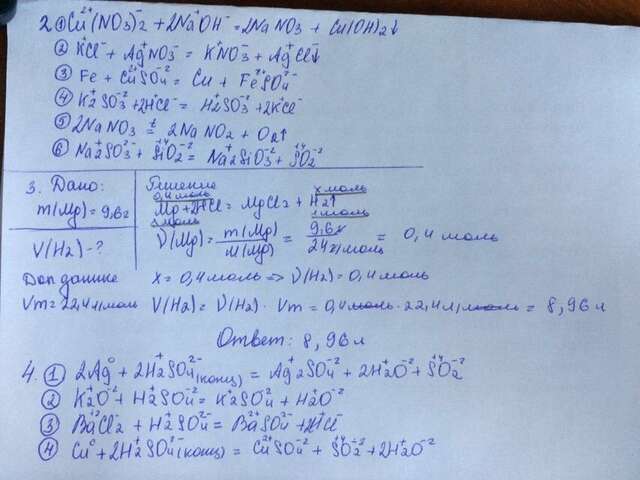 2 ① Cu²⁺(NO₃)⁻₂ + 2Na⁺OH⁻ = 2Na NO₃ + Cu(OH)₂↓
② K⁺Cl⁻ + Ag⁺NO₃⁻ = K⁺NO₃⁻ + Ag⁺Cl↓
③ Fe + Cu²⁺SO₄²⁻ = Cu + Fe²⁺SO₄²⁻
④ K₂⁺SO₃⁻² + 2H⁺Cl⁻ = H₂⁺SO₃⁻² + 2K⁺Cl⁻
⑤ 2Na NO₃ =ᵗ 2Na NO₂ + O₂↑
⑥ Na₂⁺SO₃²⁻ + Si⁺⁴O₂⁻² = Na₂⁺SiO₃⁻² + S⁺⁴O₂⁻²
3. Дано:
m(Mg) = 9,6г
V(H₂) - ?
Доп данные
Vm = 22,4 л/моль
Решение
0,4 моль x моль
Mg + 2HCl = MgCl₂ + H₂↑
1 моль 1 моль
ν(Mg) = m(Mg)/M(Mg) = 9,6г/24 г/моль = 0,4 моль
x = 0,4 моль => ν(H₂) = 0,4 моль
V(H₂) = ν(H₂) · Vm = 0,4 моль · 22,4 л/моль = 8,96 л
Ответ: 8,96 л
4. ① 2Ag⁰ + 2H₂⁺SO₄²⁻(конц) = Ag₂⁺SO₄⁻² + 2H₂⁺O⁻² + S⁺⁴O₂⁻²
② K₂⁺O⁻² + H₂⁺SO₄⁻² = K₂⁺SO₄⁻² + H₂⁺O⁻²
③ Ba⁺²Cl₂⁻ + H₂⁺SO₄⁻² = Ba²⁺SO₄⁻² + 2H⁺Cl⁻
④ Cu⁰ + 2H₂⁺SO₄²⁻(конц) = Cu²⁺SO₄⁻² + S⁺⁴O₂⁻² + 2H₂⁺O⁻²